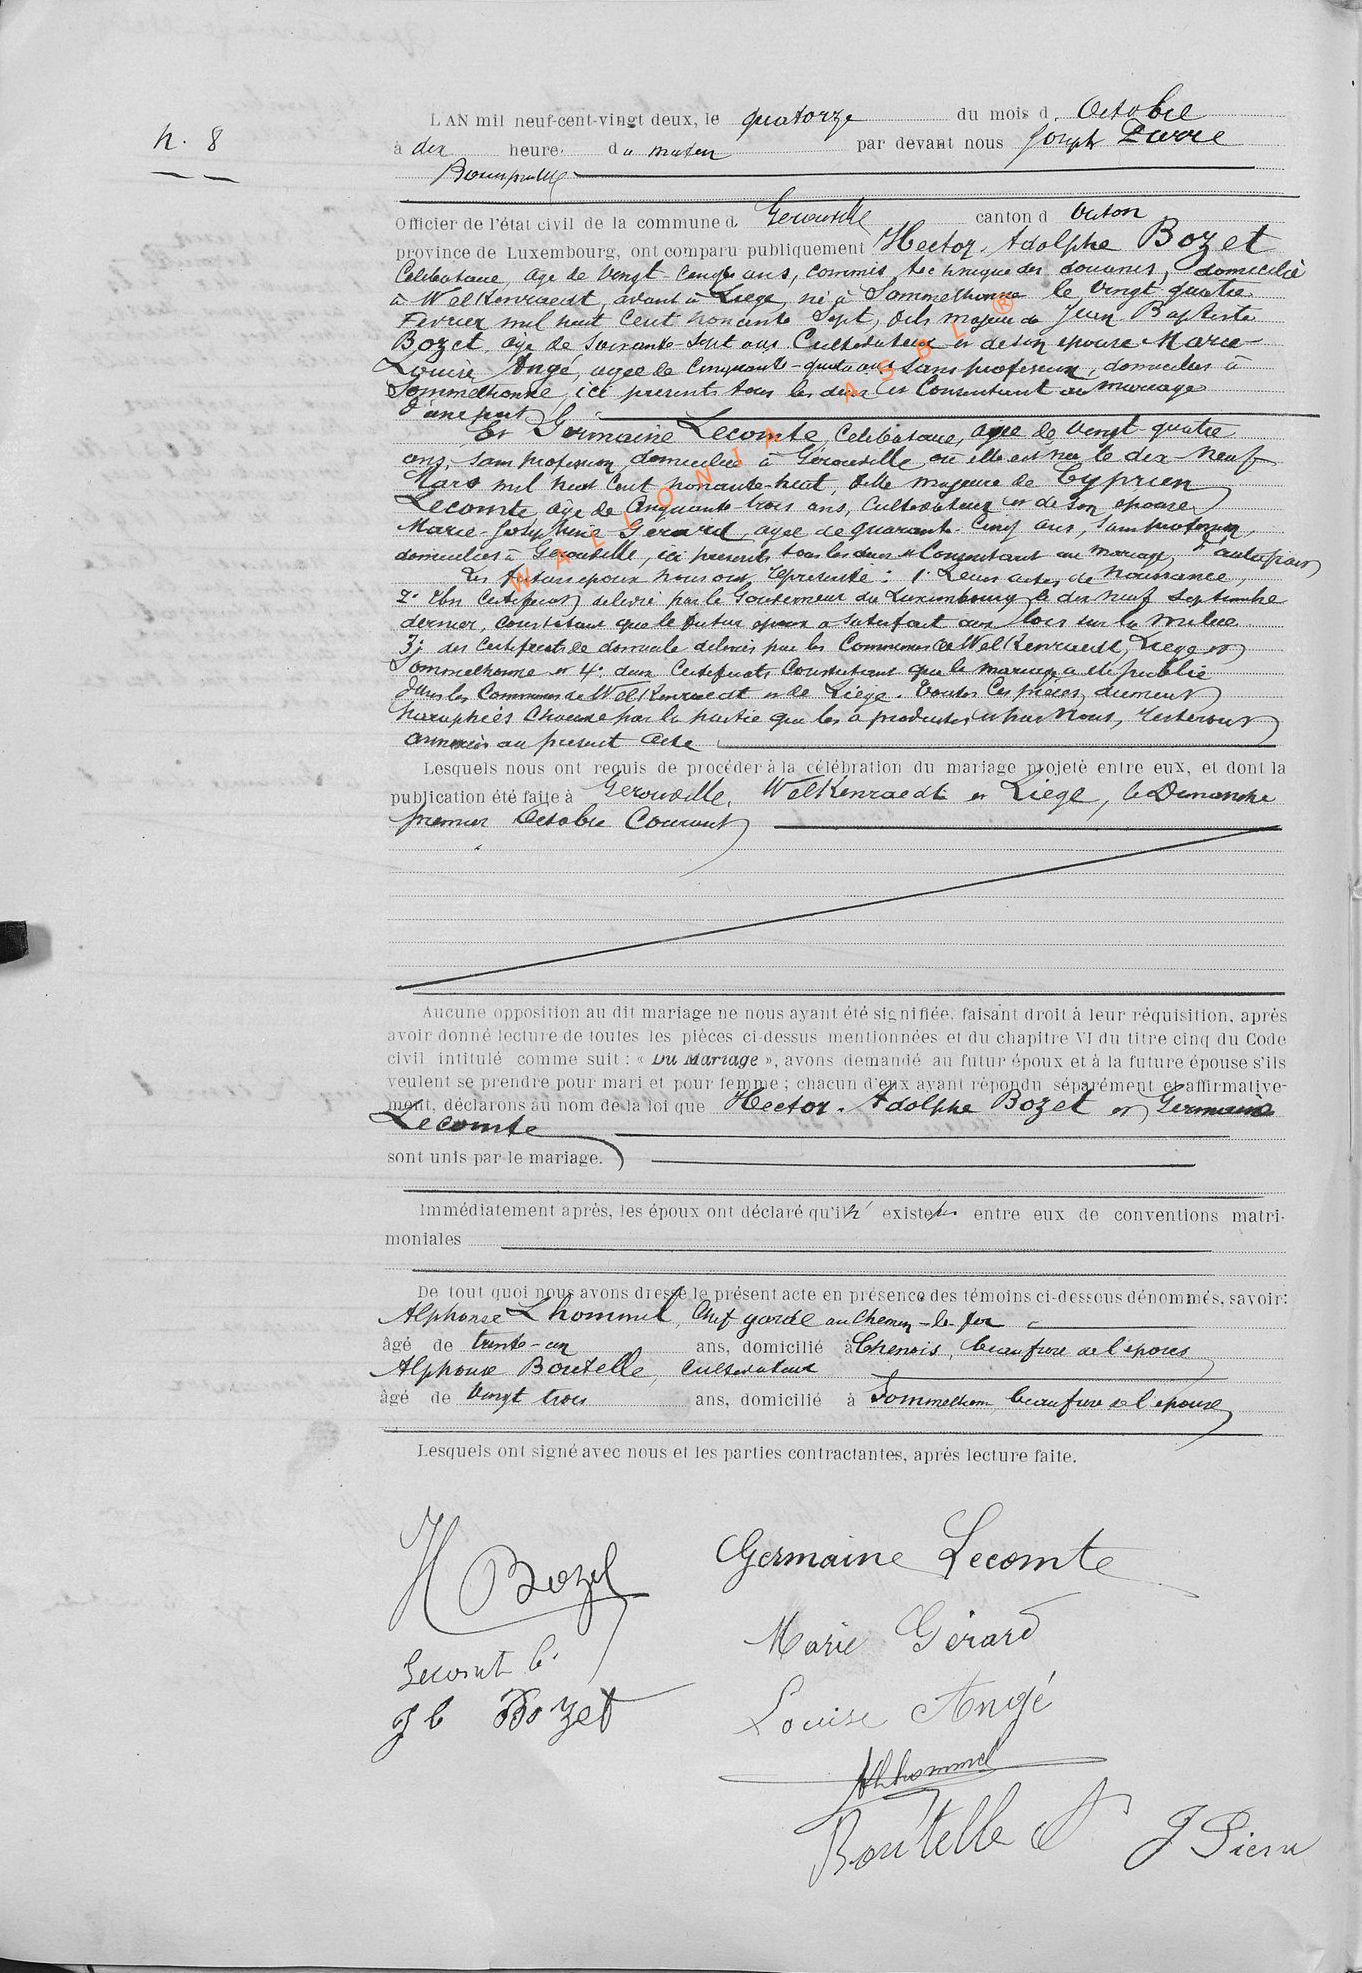 N. 8
L'AN mil neuf-cent-vingt deux, le quatorze du mois d. Octobre
à dix heure. du matin par devant nous Joseph Pierre
Bourgmestre
Officier de l'état civil de la commune d. Gérouville canton d Virton
province de Luxembourg, ont comparu publiquement Hector-Adolphe Bozet
Célibataire, âgé de vingt cinq ans, commis technique des douanes, domicilié
à Welkenraedt, avant à Liège, né à Sommethonne le vingt quatre
Février mil huit cent nonante sept, fils majeur de Jean Baptiste
Bozet, âgé de soixante-sept ans Cultivateur et de son épouse Marie-
Louise Angé, agée de cinquante-quatre ans sans profession, domiciliés à
Sommethonne, ici présents tous les deux et Consentant au mariage
d'une part
Et Germaine Lecomte, Célibataire, agée de vingt-quatre
ans, sans profession, domiciliée à Gérouville où elle est née le dix neuf
Mars mil huit cent nonante-huit, fille majeure de Cyprien
Lecomte âgé de cinquante-trois ans, cultivateur et de son épouse
Marie-Joséphine Gérard, agée de quarante-cinq ans, sans profession,
domiciliés à Gérouville, ici présents tous les deux et Consentant au mariage, d'autre part
Les futurs époux nous ont représenté : 1° Leurs actes de Naissance,
2° Un Certificat délivré par le Gouverneur du Luxembourg le dix neuf septembre
dernier, constatant que le futur époux a satisfait aux lois sur la milice
3° des Certificats de domicile délivrés par les Communes de Welkenraedt, Liège et
Sommethonne et 4° deux Certificats constatant que le mariage a été publié
dans les Communes de Welkenraedt et de Liège. Toutes ces pièces, dûment
paraphées chacune par la partie qui les a produites et par Nous, resteront
annexées au présent acte
Lesquels nous ont requis de procéder à la célébration du mariage projeté entre eux, et dont la
publication été faite à Gérouville, Welkenraedt et Liège, le Dimanche
premier Octobre Courant
Aucune opposition au dit mariage ne nous ayant été signifiée, faisant droit à leur réquisition, après
avoir donné lecture de toutes les pièces ci-dessus mentionnées et du chapitre VI du titre cinq du Code
civil intitulé comme suit : « Du Mariage », avons demandé au futur époux et à la future épouse s'ils
veulent se prendre pour mari et pour femme ; chacun d'eux ayant répondu séparément et affirmative-
ment, déclarons au nom de la loi que Hector-Adolphe Bozet et Germaine
Lecomte
sont unis par le mariage.
Immédiatement après, les époux ont déclaré qu'il n' existe pas entre eux de conventions matri-
moniales
De tout quoi nous avons dressé le présent acte en présence des témoins ci-dessous dénommés, savoir:
Alphonse Lhommel, Chef garde au Chemin-de-fer
âgé de trente-un ans, domicilié à Chenois, beaufrère de l'époux
Alphonse Boutelle, cultivateur
âgé de vingt trois ans, domicilié à Sommethonne beaufrère de l'épouse
Lesquels ont signé avec nous et les parties contractantes, après lecture faite.
H Bozet
Germaine Lecomte
Marie Gérard
Lecomte C.
J B Bozet
Louise Angé
A Lhommel
Boutelle A
J Pierre
WALLONIA ASBL ®